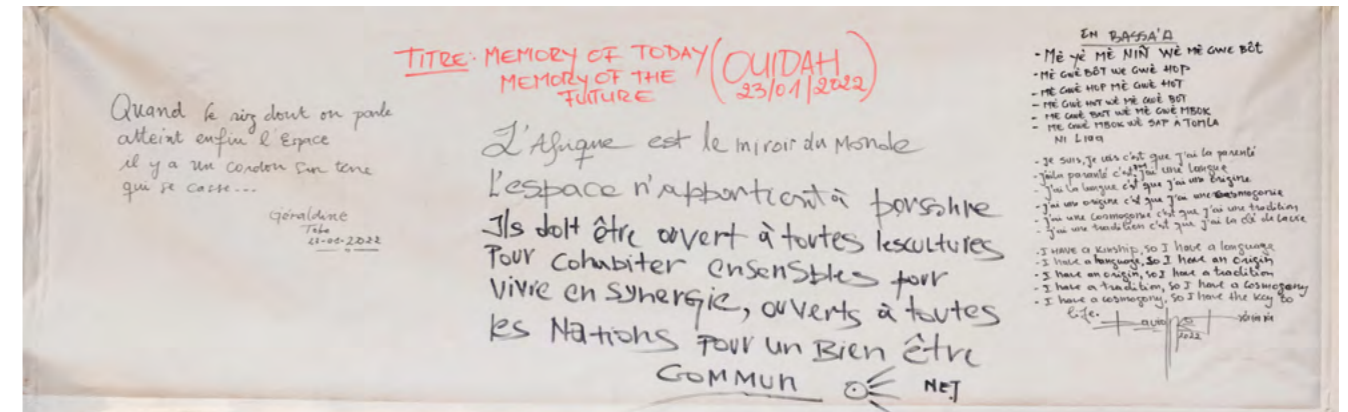 Quand le riz dont on parle
atteint enfin l'Espace
il y a un cordon sur terre
qui se casse...
Géraldine
Tobe
-2022
TITRE: MEMORY OF TODAY
MEMORY OF THE
FUTURE
(OUIDAH
23/01/2022)
L'Afrique est le miroir du Monde
L'espace n'appartient à personne
Ils doit être ouvert à toutes les cultures
Pour cohabiter ensensbles pour
vivre en synergie, ouverts à toutes
les Nations Pour un Bien être
COMMUN NET
EN BASSA'A
- Mè yè MÈ NIÑ WÈ MÈ GWE BÔT
- MÈ GWÈ BÔT WE GWÈ HOP
- MÈ GWÈ HOP MÈ GWÈ HOT
- MÈ GWÈ HOT WÈ MÈ GWÈ BOT
- MÈ GWÈ BOT WÈ MÈ GWÈ MBOK
- MÈ GWÈ MBOK WÈ SAP A TOMLA
NI
- Je suis, Je vis c'est que j'ai la parenté
- J'ai la parenté c'est j'ai une langue
- J'ai la langue c'est que j'ai une origine
- J'ai une origine c'est que j'ai une cosmogonie
- J'ai une cosmogonie c'est que j'ai une tradition
- J'ai une tradition c'est que j'ai la clé de la vie
- I HAVE a kinship, so I have a language
- I have a language, so I have an origin
- I have an origin, so I have a tradition
- I have a tradition, so I have a cosmogony
- I have a cosmogony, so I have the key to
life.
2022